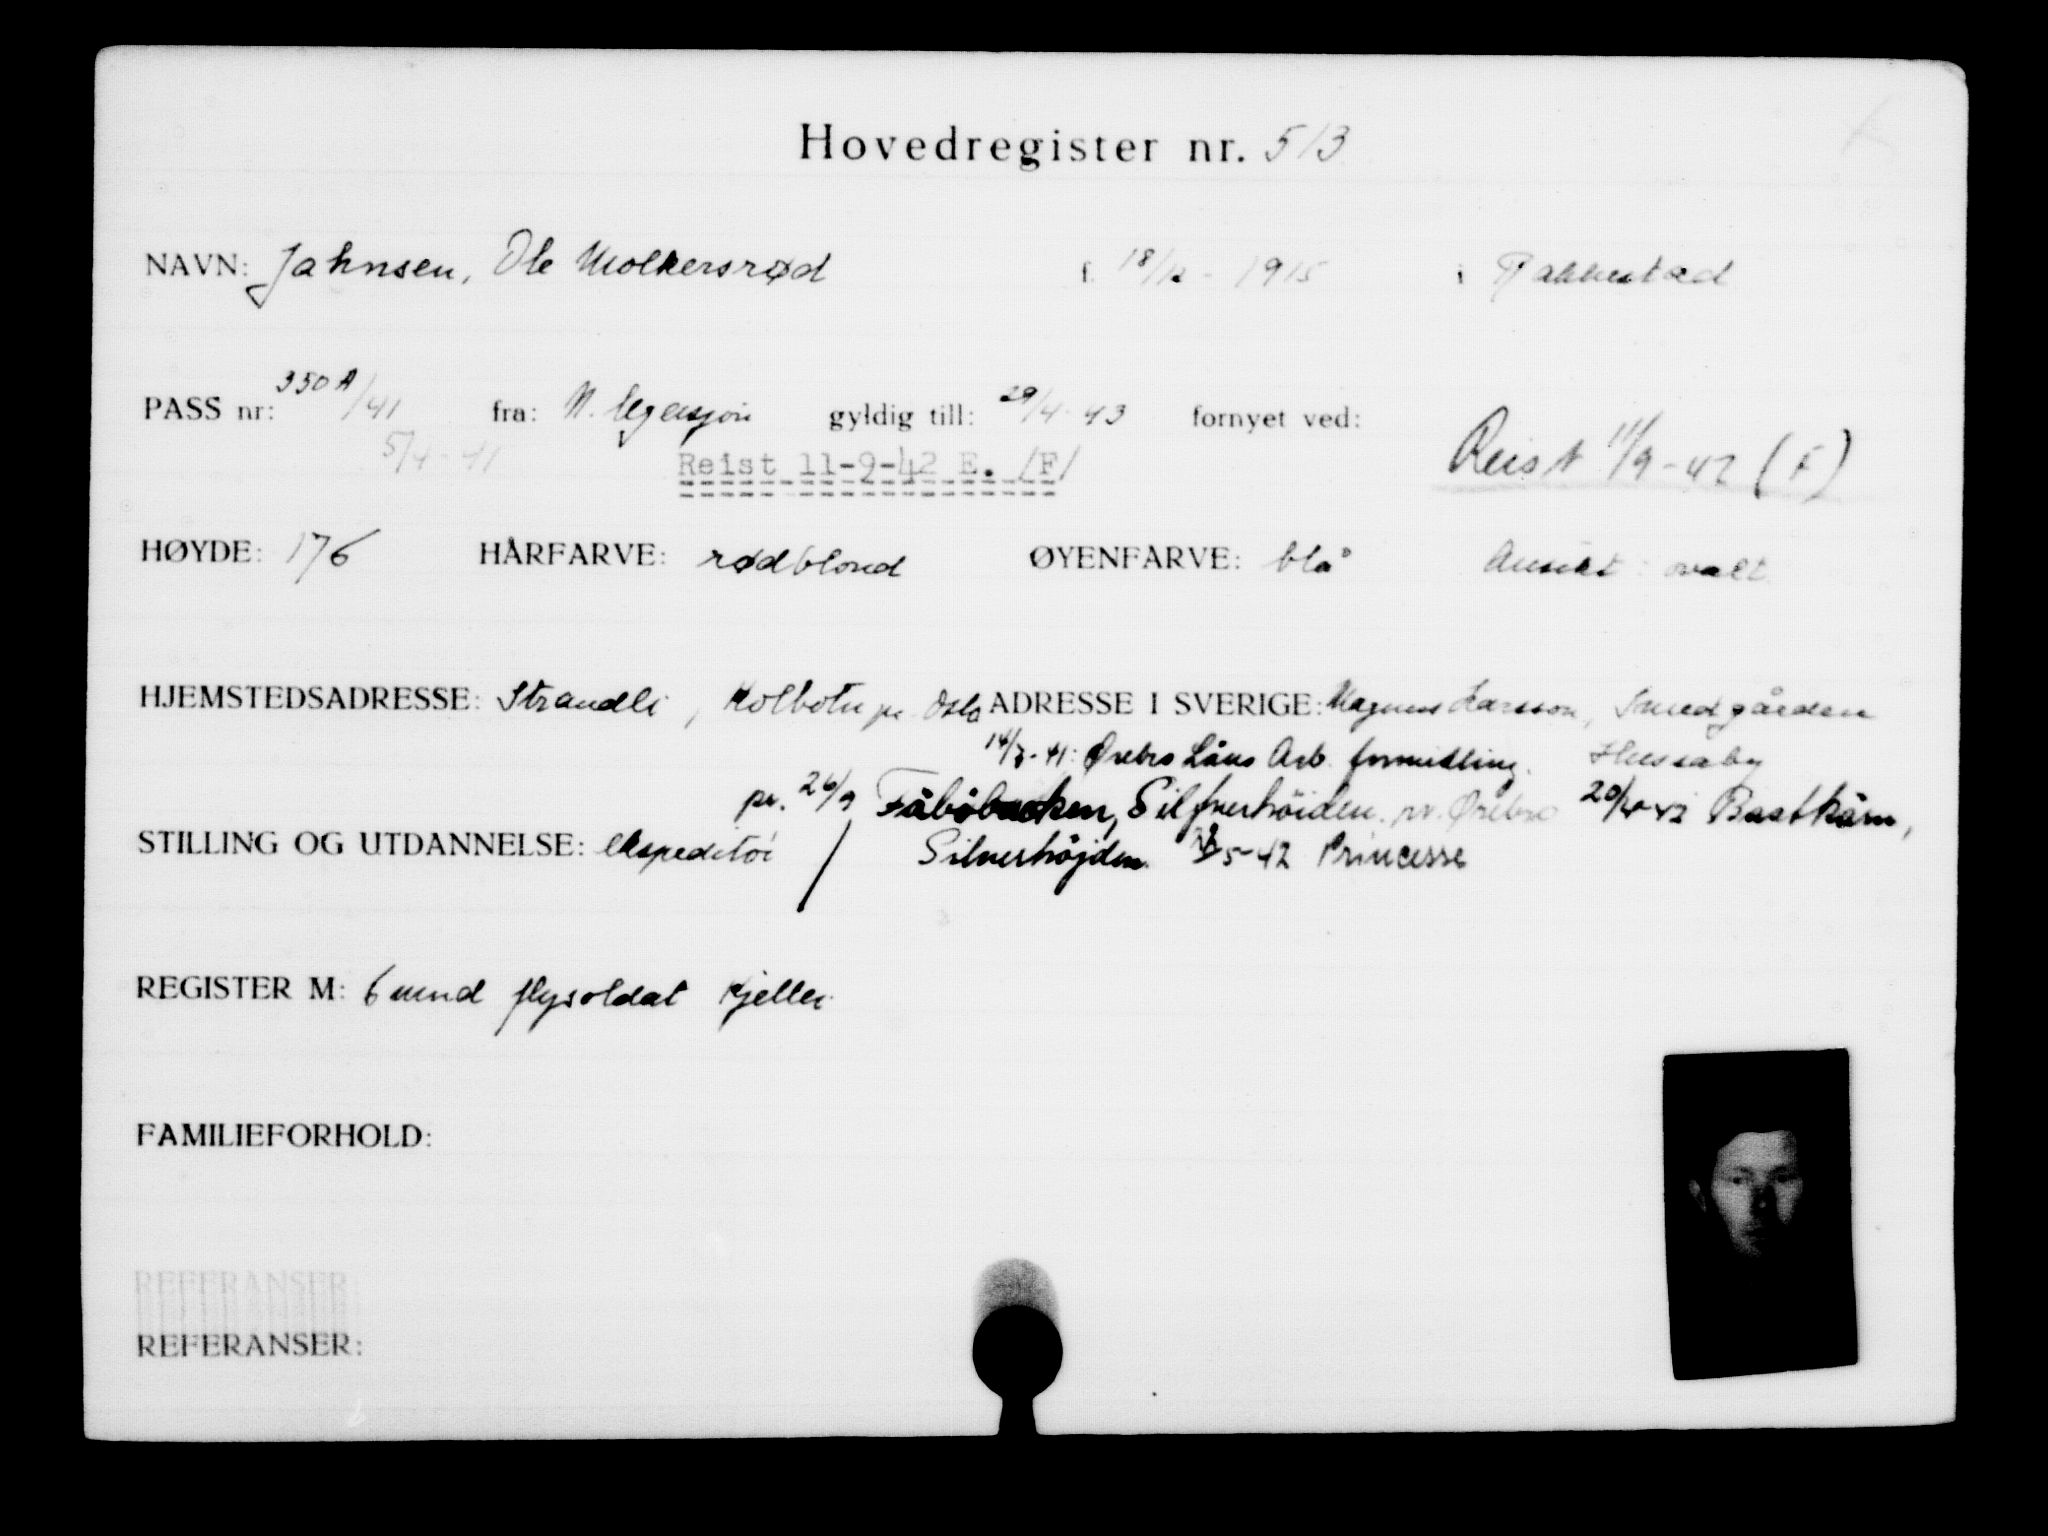 Hovedregister nr. 513
NAVN: Jahnsen, Ole Molkersrød f. 18/12 - 1915 i Rakkestad
PASS nr: 350 A/41 fra: N. legasjon gyldig till: 29/4-43 fornyet ved:
5/4-41 Reist 11-9-42 E. /F/ Reist 11/9-42 (F)
HØYDE: 176 HÅRFARVE: rødblond ØYENFARVE: blå Ansikt: ovalt
HJEMSTEDSADRESSE: Strandli, Kolbotn pr Oslo ADRESSE I SVERIGE: Magnus Larsson, Smedgården
14/7-41: Ørebro Läns Arb. formidling. Hussaby
pr. 26/9 Fäbobacken, Silfverhöiden. pr. Ørebro 20/4-42 Bastkärn,
STILLING OG UTDANNELSE: ekspeditør / Silverhöjden. 5-42 Princesse
REGISTER M: 6 mnd flysoldat Kjeller
FAMILIEFORHOLD:
REFERANSER
REFERANSER: